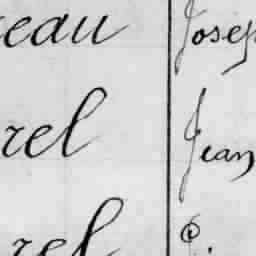 eau Josep
rel Jean
rel P.